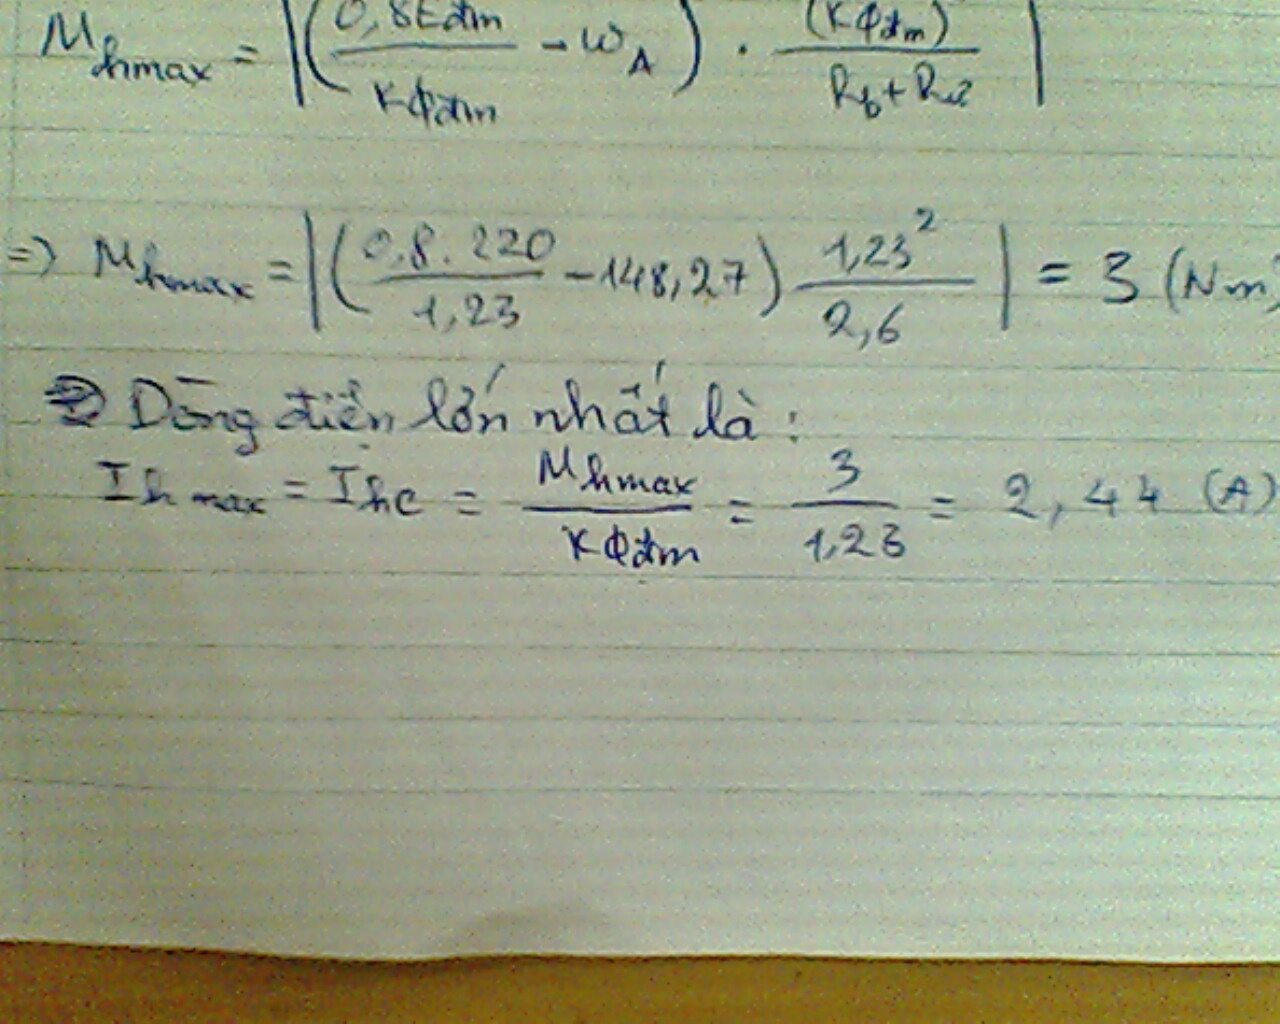 M_hmax = |(0,8Eđm / KΦđm - ω_A) . (KΦđm) / (R_b + R_ư)|
=> M_hmax = |(0,8. 220 / 1,23 - 148,27) 1,23² / 2,6| = 3 (Nm)
Dòng điện lớn nhất là :
I_h max = I_hc = M_hmax / KΦđm = 3 / 1,23 = 2,44 (A)